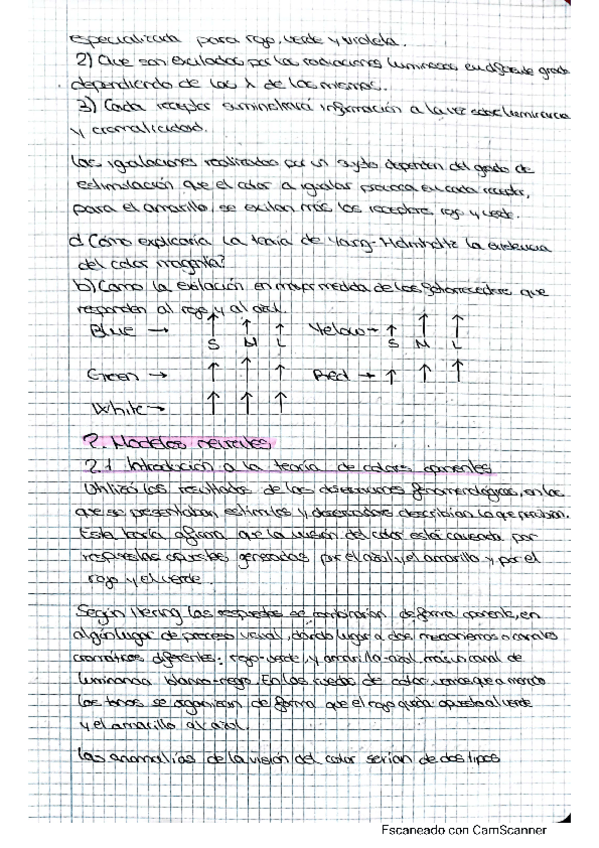 especializada para rojo, verde y violeta.
2) Que son excitados por las radiaciones luminosas en diferente grado
dependiendo de las λ de las mismas.
3) Cada receptor suministrará información a la vez sobre luminancia
y cromaticidad.
Las igualaciones realizadas por un sujeto dependen del grado de
estimulación que el color a igualar provoca en cada receptor,
para el amarillo, se excitan más los receptores rojo y verde.
d Cómo explicaría la teoría de Young-Helmholtz la existencia
del color magenta?
b) Como la exitación en mayor medida de los fotorreceptores que
responden al rojo y al azul.
Blue → ↑ ↑ ↑ Yellow → ↑ ↑ ↑
S M L S M L
Green → ↑ ↑ ↑ Red → ↑ ↑ ↑
White → ↑ ↑ ↑
2. Modelos neurales
2.1 Introducción a la teoría de colores oponentes
Utilizó los resultados de las observaciones fenomenológicas, en las
que se presentaban estímulos y observadores describían lo que percibían.
Esta teoría afirma que la visión del color está causada por
respuestas opuestas generadas por el azul y el amarillo y por el
rojo y el verde.
Según Hering las respuestas se combinarían de forma oponente, en
algún lugar de proceso visual, dando lugar a dos mecanismos o canales
cromáticos diferentes: rojo-verde, y amarillo-azul, más un canal de
luminancia blanco-negro. En las ruedas de color, vemos que a menudo
los tonos se organizan de forma que el rojo queda opuesto al verde
y el amarillo al azul.
Las anomalías de la visión del color serían de dos tipos
Escaneado con CamScanner